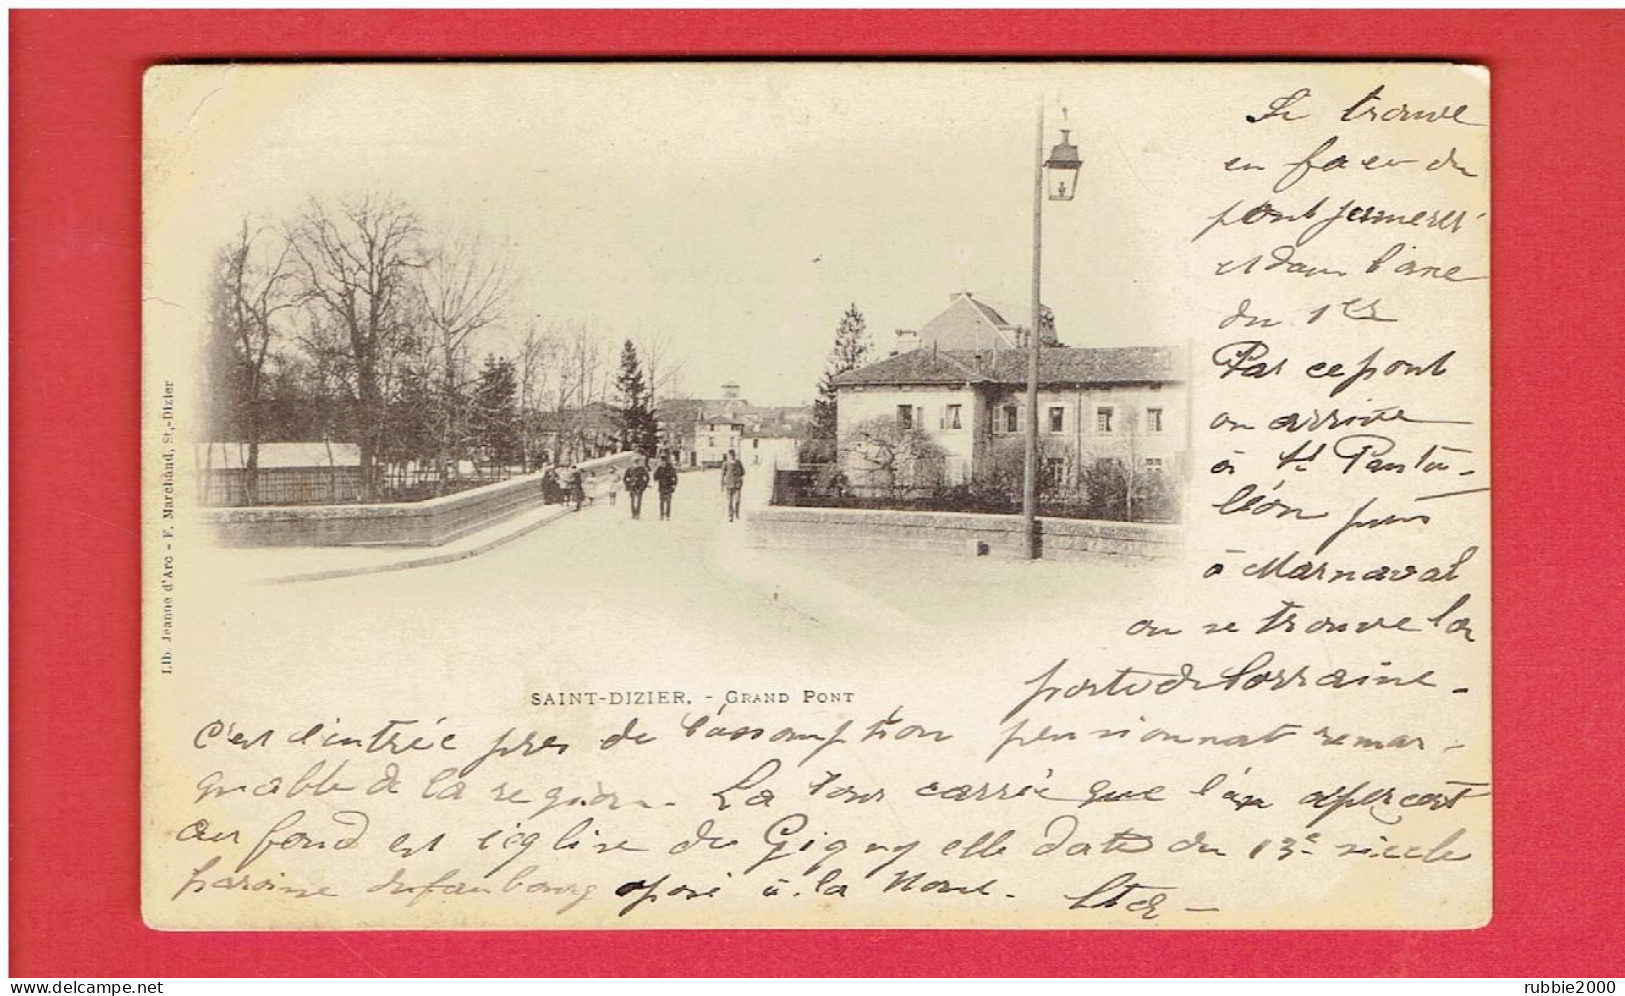 Se trouve
en face du
pont
et dans l'axe
du 1er
Par ce pont
on arrive
à St Panta-
léon puis
à Marnaval
on se trouve la
porte de Lorraine -
SAINT-DIZIER. - GRAND PONT
C'est l'entrée près de l'assomption pensionnat remar-
quable de la région. La tour carrée que l'on aperçoit
au fond est l'église de Gigny elle date du 13e siècle
paroisse du faubourg oposé à la Noue.
Lib. Jeanne d'Arc - F. Marchand, St.-Dizier
delcampe.net
rubbie2000